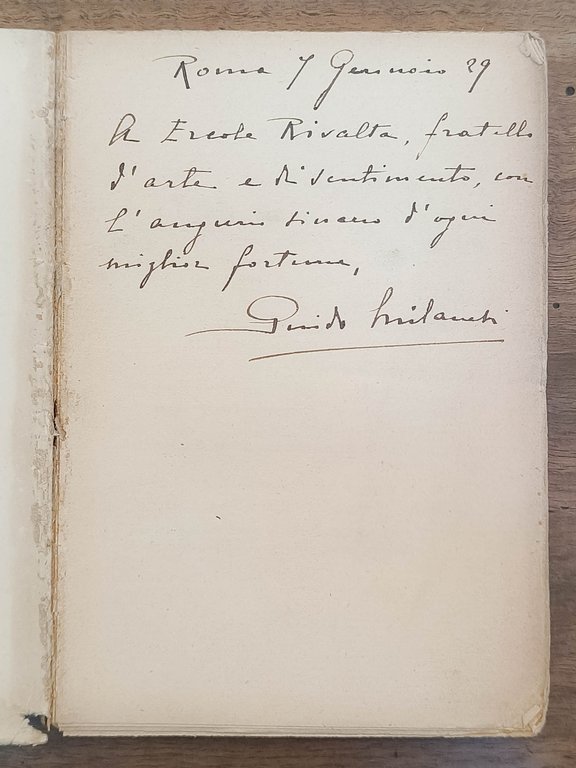 Roma 7 Gennaio 29
A Ercole Rivalta, fratello
d'arte e di sentimento, con
l'augurio sincero d'ogni
miglior fortuna,
Guido Milanesi